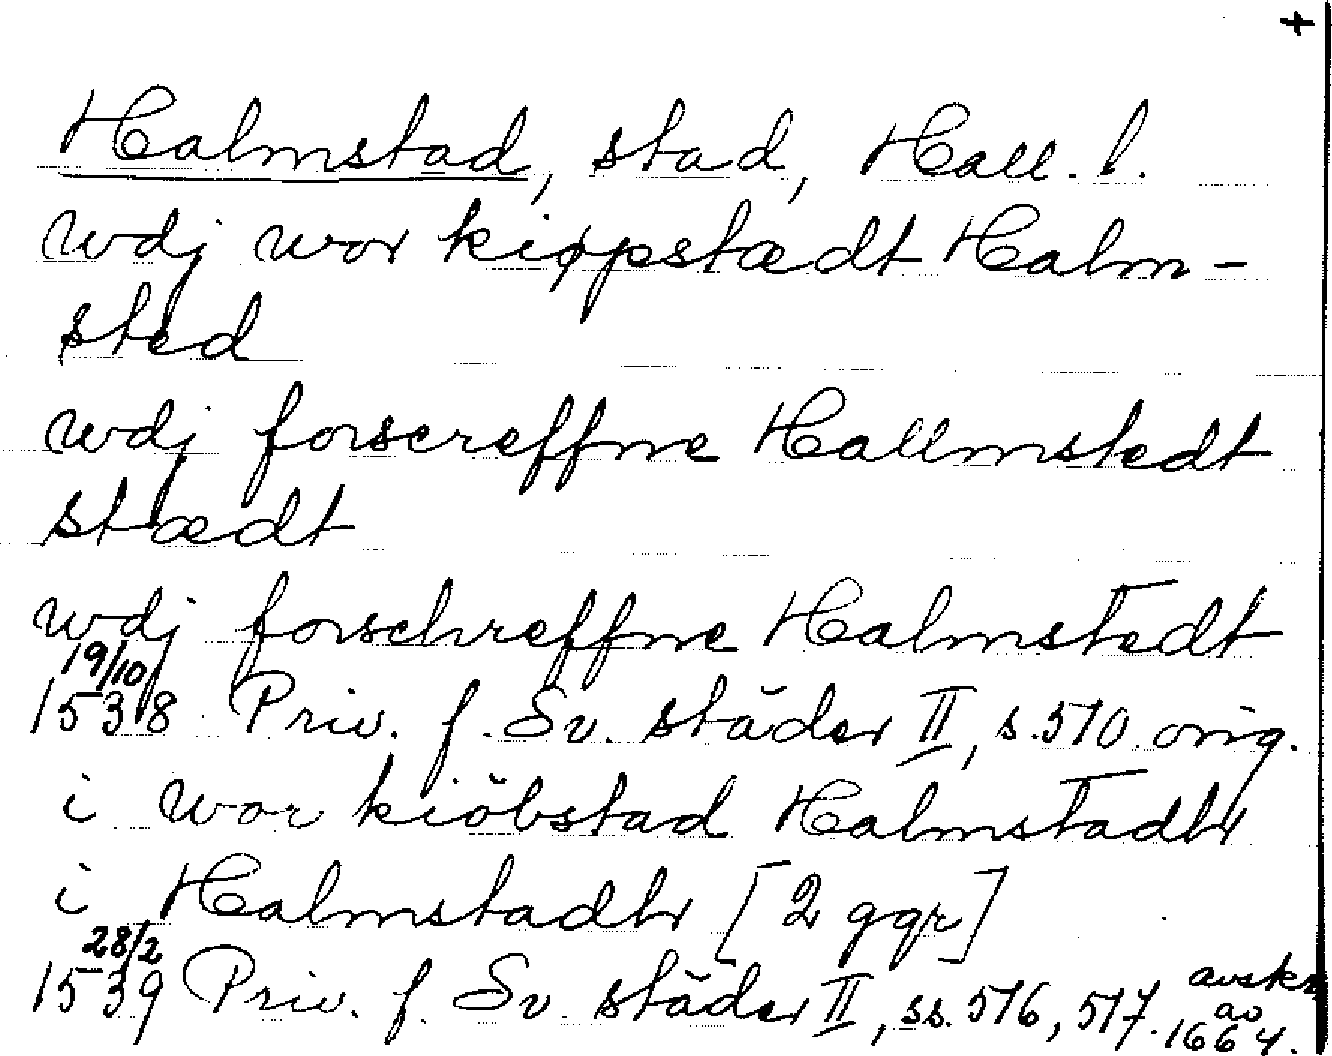 +
Halmstad, stad, Hall. l.
wdj wor kiøpstædt Halm-
sted
wdj forscreffne Hallmstedt
stædt
wdj forschreffne Halmstedt
19/10
1538 Priv. f. Sv. städer II, s. 510 orig.
i wor kiöbstad Halmstadh
i Halmstadh [2 ggr]
28/2
1539 Priv. f. Sv. städer II, ss. 516, 517. avskr
av
1664.